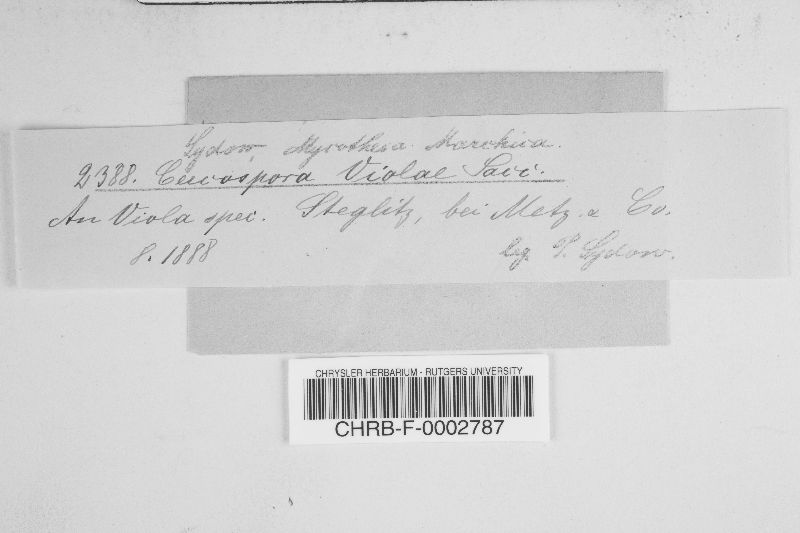 Sydow, Mycotheca Marchica.
2388. Cercospora Violae Sacc.
An Viola spec. Steglitz, bei Metz & Co.
8. 1888 leg. P. Sydow.
CHRYSLER HERBARIUM - RUTGERS UNIVERSITY
CHRB-F-0002787